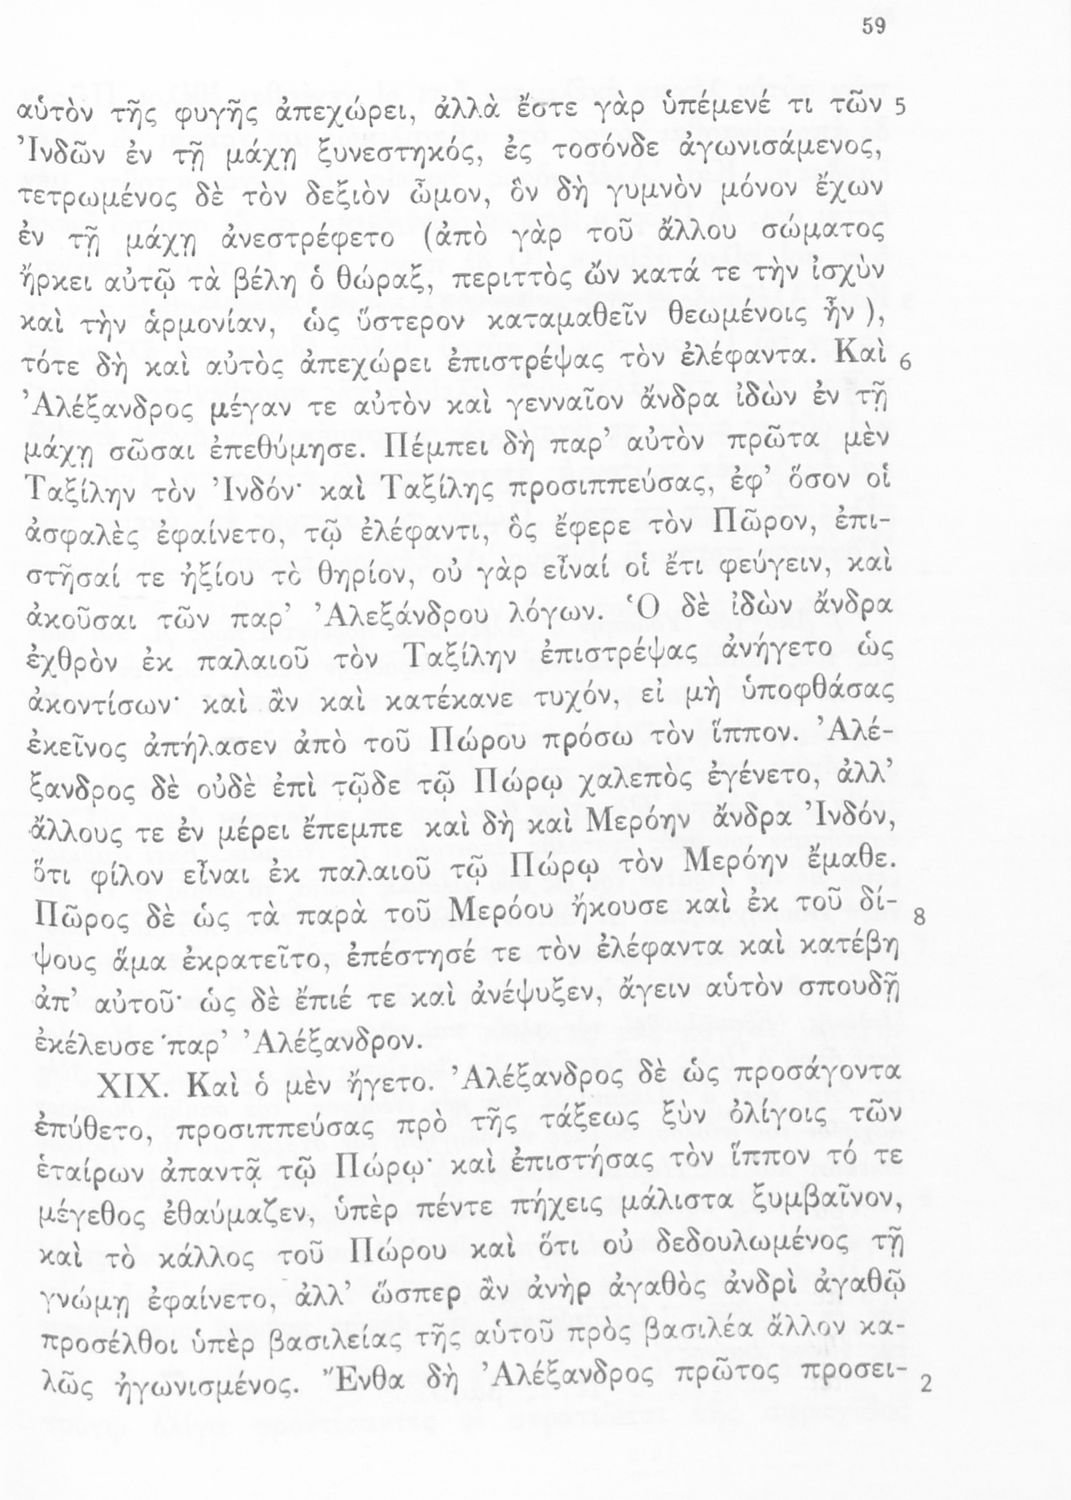 59
αὑτὸν τῆς φυγῆς ἀπεχώρει, ἀλλὰ ἔστε γὰρ ὑπέμενέ τι τῶν 5
Ἰνδῶν ἐν τῇ μάχῃ ξυνεστηκός, ἐς τοσόνδε ἀγωνισάμενος,
τετρωμένος δὲ τὸν δεξιὸν ὦμον, ὃν δὴ γυμνὸν μόνον ἔχων
ἐν τῇ μάχῃ ἀνεστρέφετο (ἀπὸ γὰρ τοῦ ἄλλου σώματος
ἤρκει αὐτῷ τὰ βέλη ὁ θώραξ, περιττὸς ὢν κατά τε τὴν ἰσχὺν
καὶ τὴν ἁρμονίαν, ὡς ὕστερον καταμαθεῖν θεωμένοις ἦν ),
τότε δὴ καὶ αὐτὸς ἀπεχώρει ἐπιστρέψας τὸν ἐλέφαντα. Καὶ 6
Ἀλέξανδρος μέγαν τε αὐτὸν καὶ γενναῖον ἄνδρα ἰδὼν ἐν τῇ
μάχῃ σῶσαι ἐπεθύμησε. Πέμπει δὴ παρ’ αὐτὸν πρῶτα μὲν
Ταξίλην τὸν Ἰνδόν· καὶ Ταξίλης προσιππεύσας, ἐφ’ ὅσον οἱ
ἀσφαλὲς ἐφαίνετο, τῷ ἐλέφαντι, ὃς ἔφερε τὸν Πῶρον, ἐπι-
στῆσαί τε ἠξίου τὸ θηρίον, οὐ γὰρ εἶναί οἱ ἔτι φεύγειν, καὶ
ἀκοῦσαι τῶν παρ’ Ἀλεξάνδρου λόγων. Ὁ δὲ ἰδὼν ἄνδρα
ἐχθρὸν ἐκ παλαιοῦ τὸν Ταξίλην ἐπιστρέψας ἀνήγετο ὡς
ἀκοντίσων· καὶ ἂν καὶ κατέκανε τυχόν, εἰ μὴ ὑποφθάσας
ἐκεῖνος ἀπήλασεν ἀπὸ τοῦ Πώρου πρόσω τὸν ἵππον. Ἀλέ-
ξανδρος δὲ οὐδὲ ἐπὶ τῷδε τῷ Πώρῳ χαλεπὸς ἐγένετο, ἀλλ’
ἄλλους τε ἐν μέρει ἔπεμπε καὶ δὴ καὶ Μερόην ἄνδρα Ἰνδόν,
ὅτι φίλον εἶναι ἐκ παλαιοῦ τῷ Πώρῳ τὸν Μερόην ἔμαθε.
Πῶρος δὲ ὡς τὰ παρὰ τοῦ Μερόου ἤκουσε καὶ ἐκ τοῦ δί- 8
ψους ἅμα ἐκρατεῖτο, ἐπέστησέ τε τὸν ἐλέφαντα καὶ κατέβη
ἀπ’ αὐτοῦ· ὡς δὲ ἔπιέ τε καὶ ἀνέψυξεν, ἄγειν αὑτὸν σπουδῇ
ἐκέλευσε παρ’ Ἀλέξανδρον.
XIX. Καὶ ὁ μὲν ἤγετο. Ἀλέξανδρος δὲ ὡς προσάγοντα
ἐπύθετο, προσιππεύσας πρὸ τῆς τάξεως ξὺν ὀλίγοις τῶν
ἑταίρων ἀπαντᾷ τῷ Πώρῳ· καὶ ἐπιστήσας τὸν ἵππον τό τε
μέγεθος ἐθαύμαζεν, ὑπὲρ πέντε πήχεις μάλιστα ξυμβαῖνον,
καὶ τὸ κάλλος τοῦ Πώρου καὶ ὅτι οὐ δεδουλωμένος τῇ
γνώμῃ ἐφαίνετο, ἀλλ’ ὥσπερ ἂν ἀνὴρ ἀγαθὸς ἀνδρὶ ἀγαθῷ
προσέλθοι ὑπὲρ βασιλείας τῆς αὑτοῦ πρὸς βασιλέα ἄλλον κα-
λῶς ἠγωνισμένος. Ἔνθα δὴ Ἀλέξανδρος πρῶτος προσει- 2